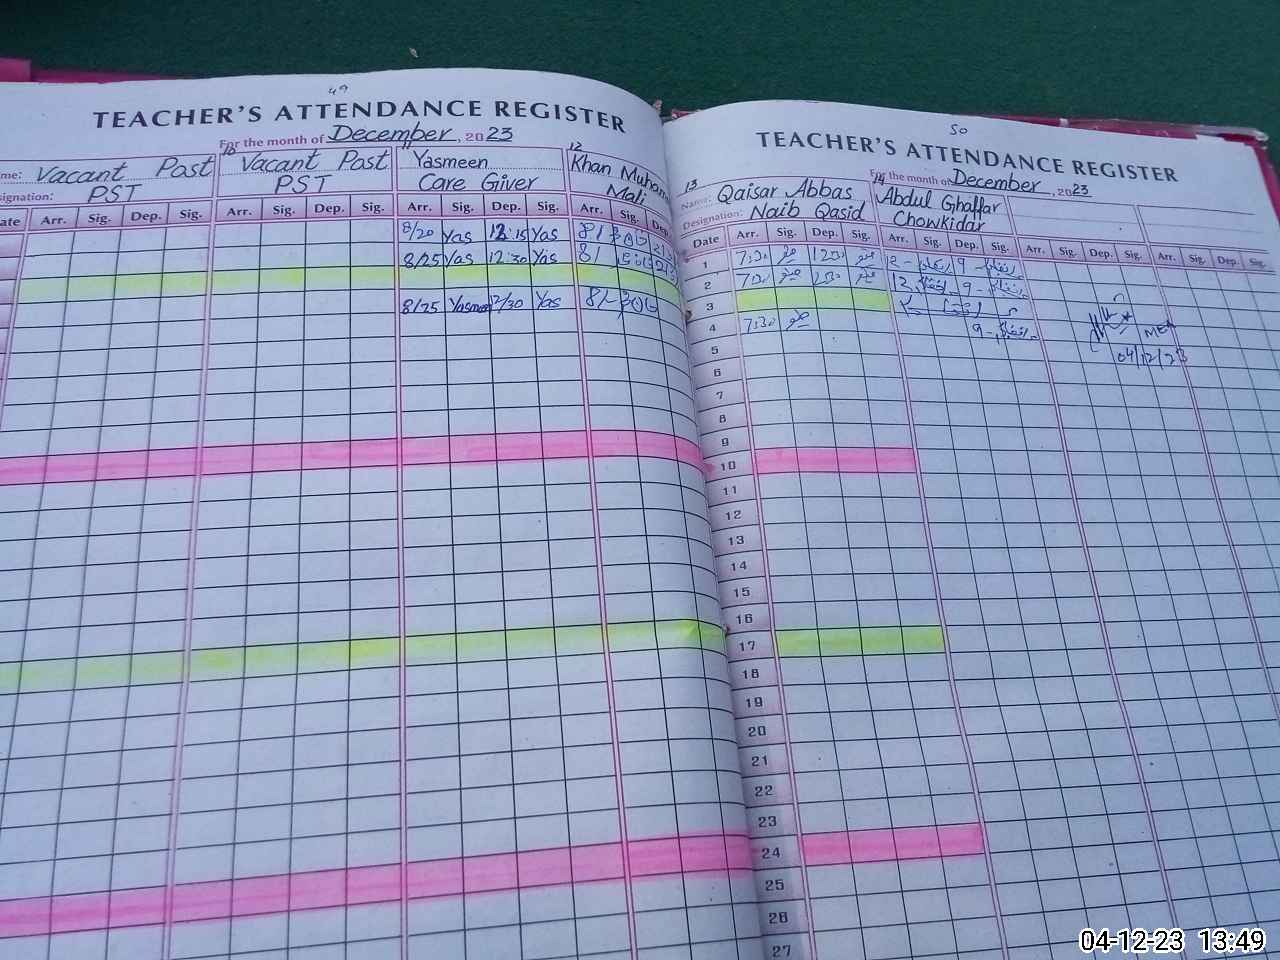 49
TEACHER'S ATTENDANCE REGISTER
For the month of December, 2023
me: Vacant Post
signation: PST
10 Vacant Post
PST
11 Yasmeen
Care Giver
12 Khan Muham
Mali
ate Arr. Sig. Dep. Sig. Arr. Sig. Dep. Sig. Arr. Sig. Dep. Sig. Arr. Sig. Dep.
8/20 Yas 12:15 Yas
8/25 Yas 12:30 Yas
8/25 Yasmeen 12/30 Yas
50
TEACHER'S ATTENDANCE REGISTER
For the month of December, 2023
13 Name: Qaisar Abbas
Designation: Naib Qasid
14 Abdul Ghaffar
Chowkidar
Date Arr. Sig. Dep. Sig. Arr. Sig. Dep. Sig. Arr. Sig. Dep. Sig. Arr. Sig. Dep. Sig.
1 7:30 1230 12- 9-
2 7:30 1230 12 9-
3
4 7:30 9-
MEA
04/12/23
5
6
7
8
9
10
11
12
13
14
15
16
17
18
19
20
21
22
23
24
25
26
27
04-12-23 13:49